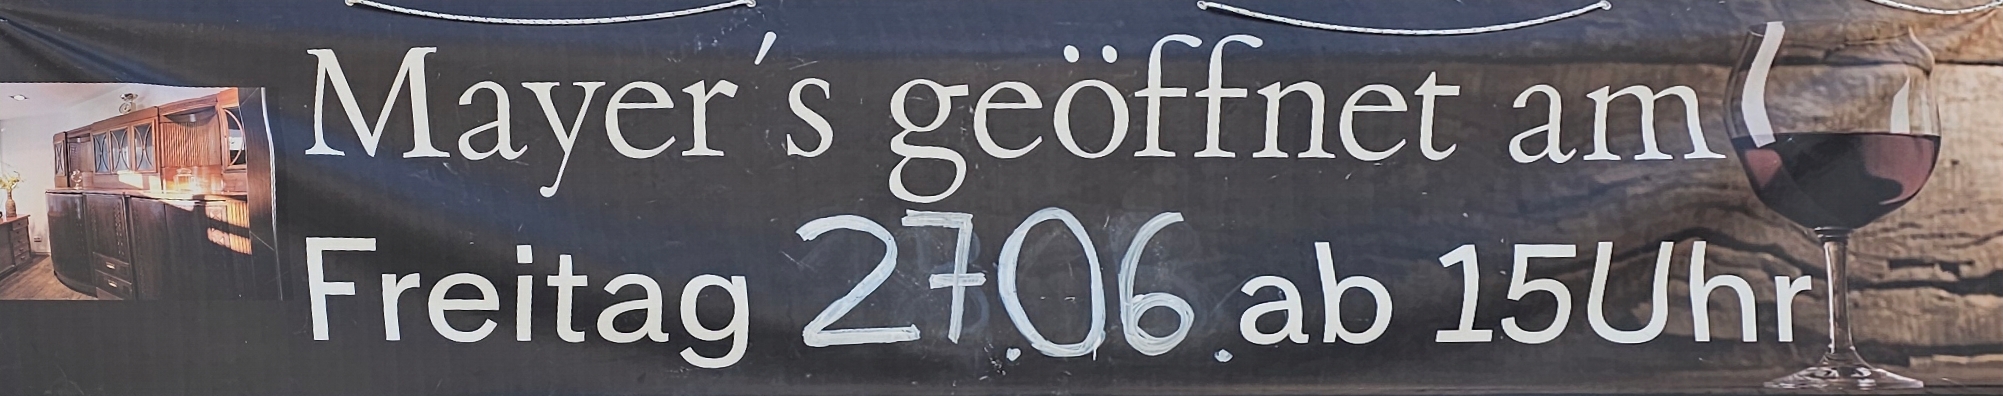 Mayer´s geöffnet am
Freitag 27.06. ab 15Uhr